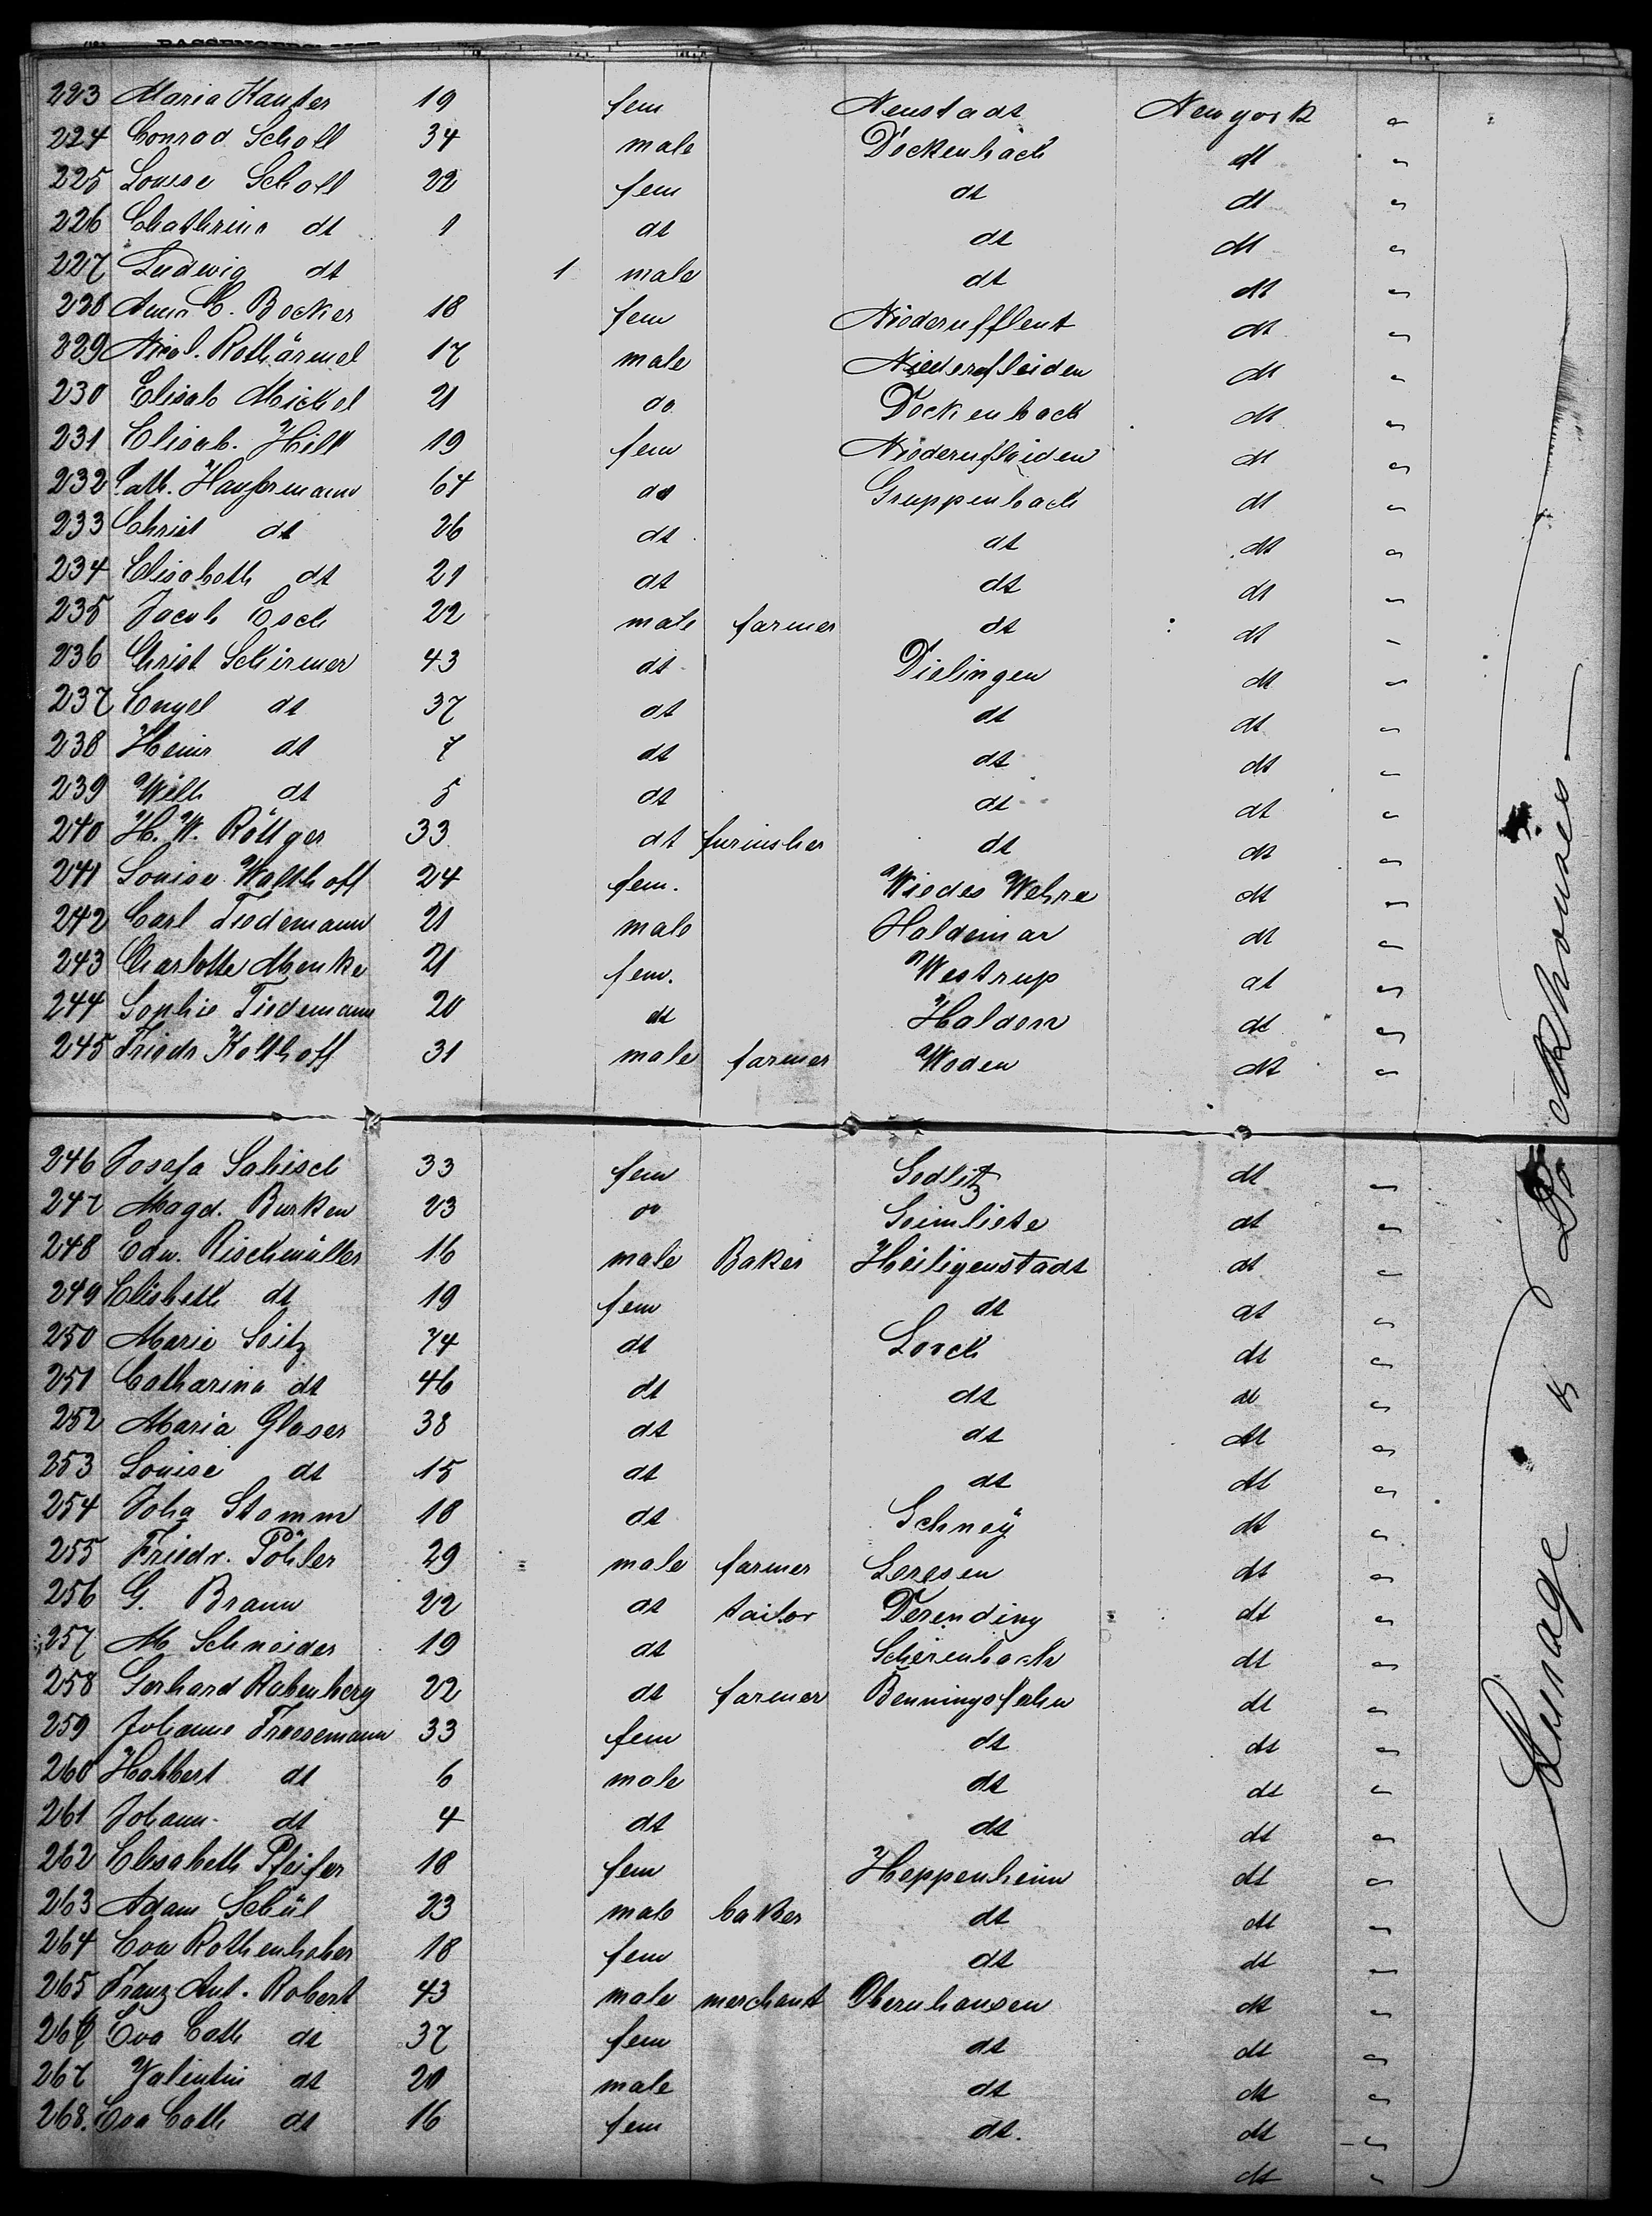 PASSENGERS LIST
223 Maria Kauter 19 fem Neustadt Newyork "
224 Conrad Scholl 34 male Dockenbach dt "
225 Louise Scholl 22 fem dt dt "
226 Chathrina dt 1 dt dt dt "
227 Ludwig dt 1 male dt dt "
228 Anna C. Becker 18 fem dt "
229 Nicol. Rothärmel 17 male Niederofleiden dt "
230 Elisab Mickel 21 do Dockenbach dt "
231 Elisab. Hill 19 fem Niederofleiden dt "
232 Cath. 64 do Gruppenbach dt "
233 Christ dt 26 dt dt dt "
234 Elisabeth dt 21 dt dt dt "
235 Jacob Esch 22 male farmer dt dt "
236 Christ Schirmer 43 dt Dielingen dt "
237 Engel dt 37 dt dt dt "
238 Heinr dt 7 dt dt dt "
239 Wilh dt 5 dt dt dt "
240 H. W. Röttger 33 dt dt dt "
241 Louise Walthoff 24 fem. Wehre dt "
242 Carl Tiedemann 21 male Haldemar dt "
243 Charlotte Menke 21 fem. Westrup dt "
244 Sophie Tiedemann 20 dt Haldem dt "
245 Friedr Kolthoff 31 male farmer Woden dt "
246 Josefa 33 fem dt "
247 Magd. Burken 23 do dt "
248 Edw. Rischmüller 16 male Baker Heiligenstadt dt "
249 Elisbeth dt 19 fem dt dt "
250 Marie Seitz 74 dt Lorch dt "
251 Catharina dt 46 dt dt dt "
252 Maria Glaser 38 dt dt dt "
253 Louise dt 15 dt dt dt "
254 Joha Stamm 18 dt Schney dt "
255 Friedr. Pöhler 29 male farmer Leresen dt "
256 G. Braun 22 dt tailor Derending dt "
257 M Schneider 19 dt Scherenbach dt "
258 Gerhard Rabenberg 22 dt farmer Benningsfehn dt "
259 Johanne Troosemann 33 fem dt dt "
260 Habbert dt 6 male dt dt "
261 Johann dt 4 dt dt dt "
262 Elisabeth Pfeifer 18 fem Heppenheim dt "
263 Adam Schül 23 male baker dt dt "
264 Eva 18 fem dt dt "
265 Franz Ant. Robert 43 male merchant Obernhausen dt "
266 Eva Cath dt 37 fem dt dt "
267 Valentin dt 20 male dt dt "
268. Eva Cath dt 16 fem dt. dt "
dt "